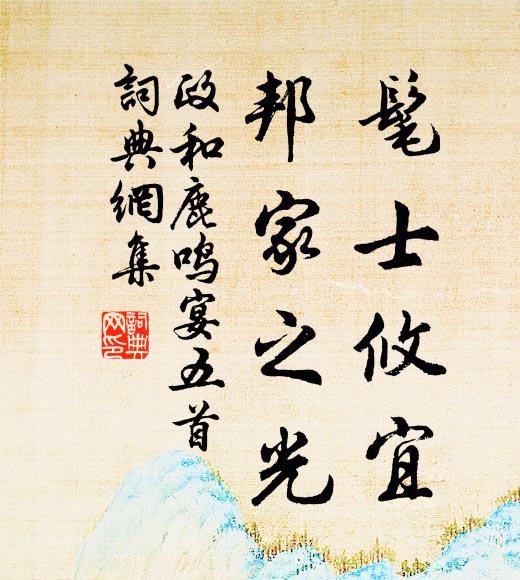 髦士攸宜
邦家之光
政和鹿鸣宴五首
詞典網集
詞典
网印